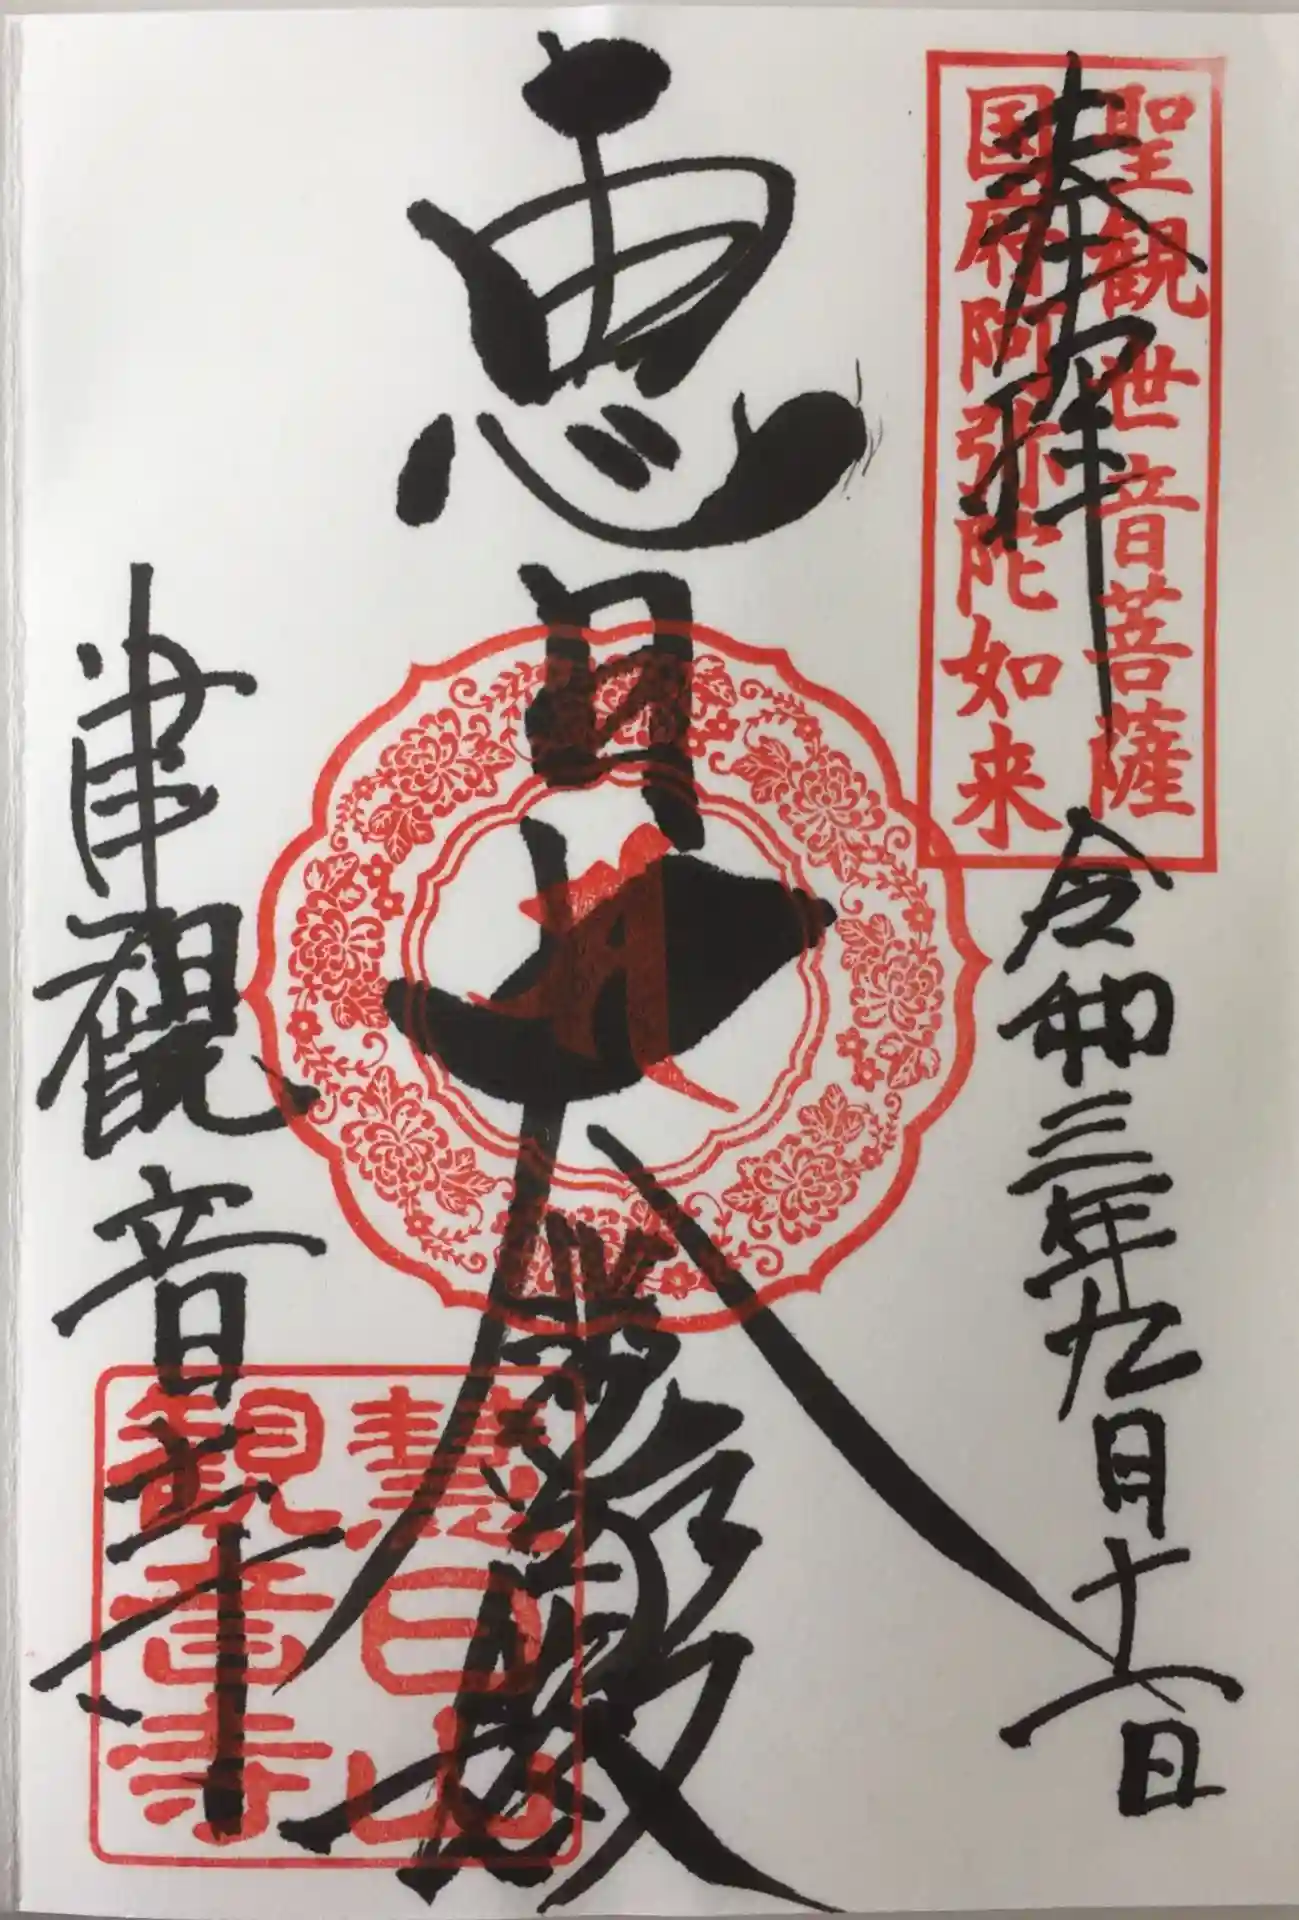 聖観世音菩薩
国府阿弥陀如来
奉拝
令和三年九月十一日
恵日大殿
津観音寺
慧日山
観音寺